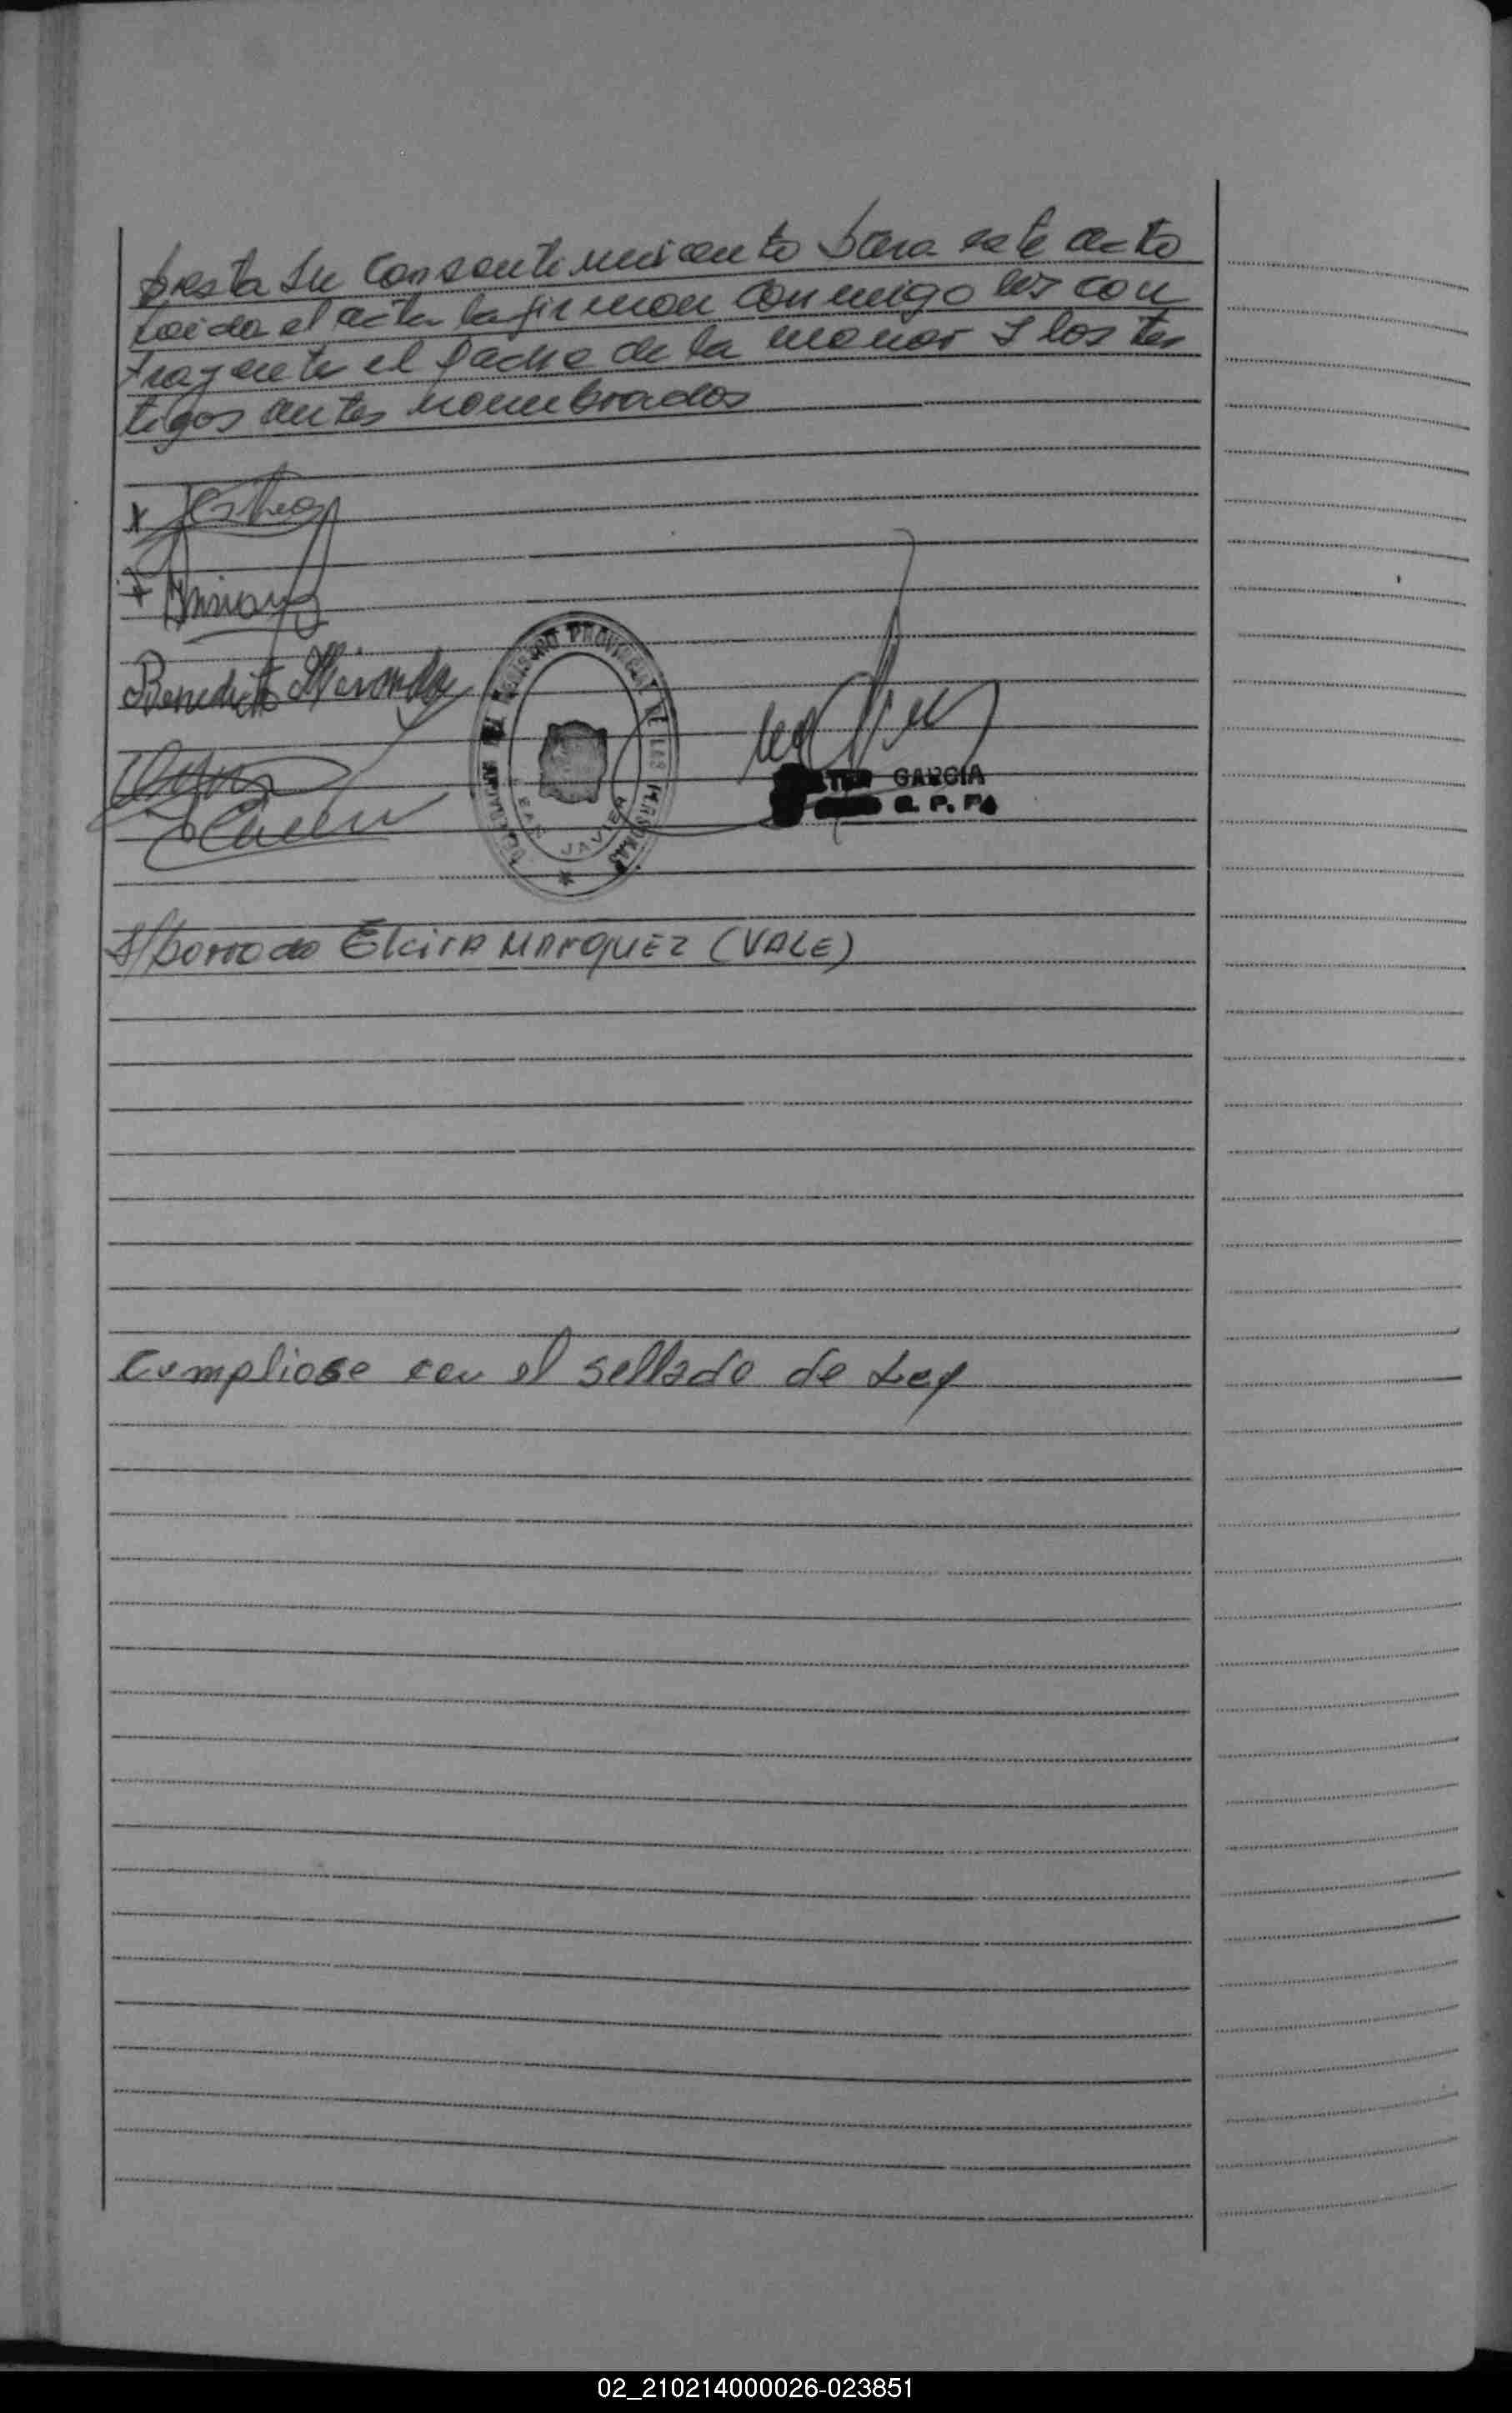 presta su consentimiento para este acto
Leida el acta la firman conmigo los con
trayente el padre de la menor y los tes
tigos antes nombrados
Benedicto Miranda
REGISTRO PROVINCIAL DE LAS PERSONAS
SAN JAVIER
GARCIA
R. P. P.
S/borrado Elcira MARQUEZ (VALE)
Cumpliose con el sellado de Ley
02_210214000026-023851